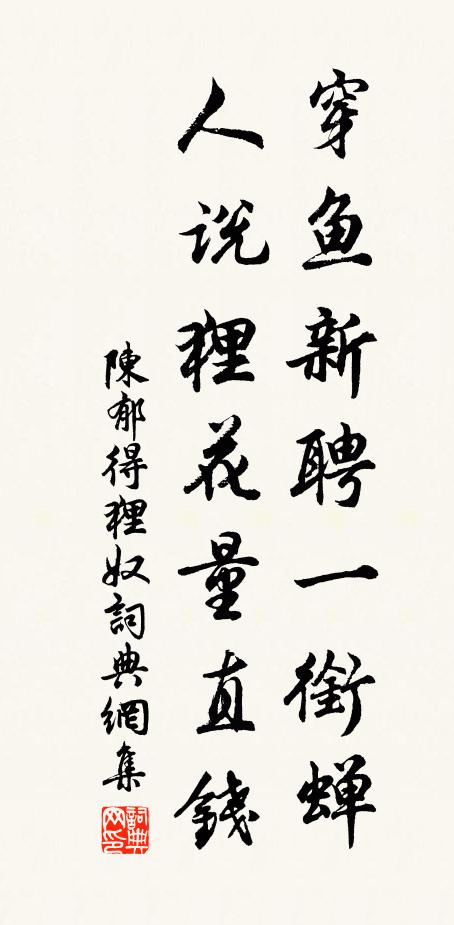 穿鱼新聘一衔蝉
人说狸花量直錢
陳郁得狸奴詞典網集
詞典网印